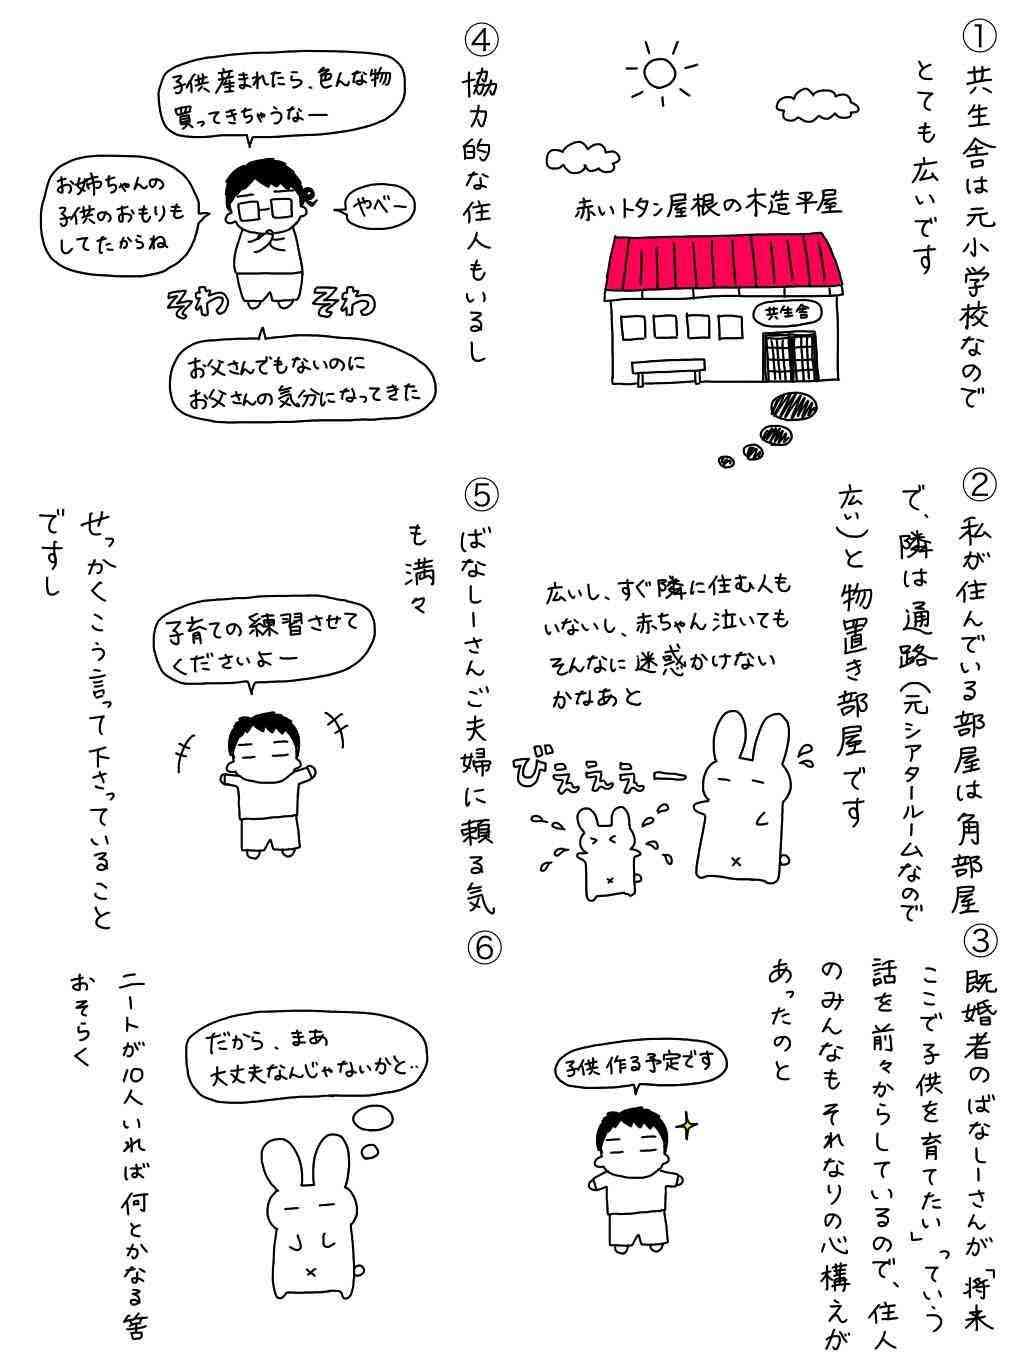 ①
共生舎は元小学校なので
とても広いです
赤いトタン屋根の木造平屋
共生舎
②
私が住んでいる部屋は角部屋
で、隣は通路(元シアタールームなので
広い)と物置き部屋です
広いし、すぐ隣に住む人も
いないし、赤ちゃん泣いても
そんなに迷惑かけない
かなあと
びぇぇぇー
③
既婚者のばなしーさんが「将来
ここで子供を育てたい」っていう
話を前々からしているので、住人
のみんなもそれなりの心構えが
あったのと
子供作る予定です
④
協力的な住人もいるし
子供産まれたら、色んな物
買ってきちゃうなー
やべー
お姉ちゃんの
子供のおもりも
してたからね
そわ
そわ
お父さんでもないのに
お父さんの気分になってきた
⑤
ばなしーさんご夫婦に頼る気
も満々
子育ての練習させて
くださいよー
せっかくこう言って下さっていること
ですし
⑥
だから、まあ
大丈夫なんじゃないかと‥
ニートが10人いれば何とかなる筈
おそらく